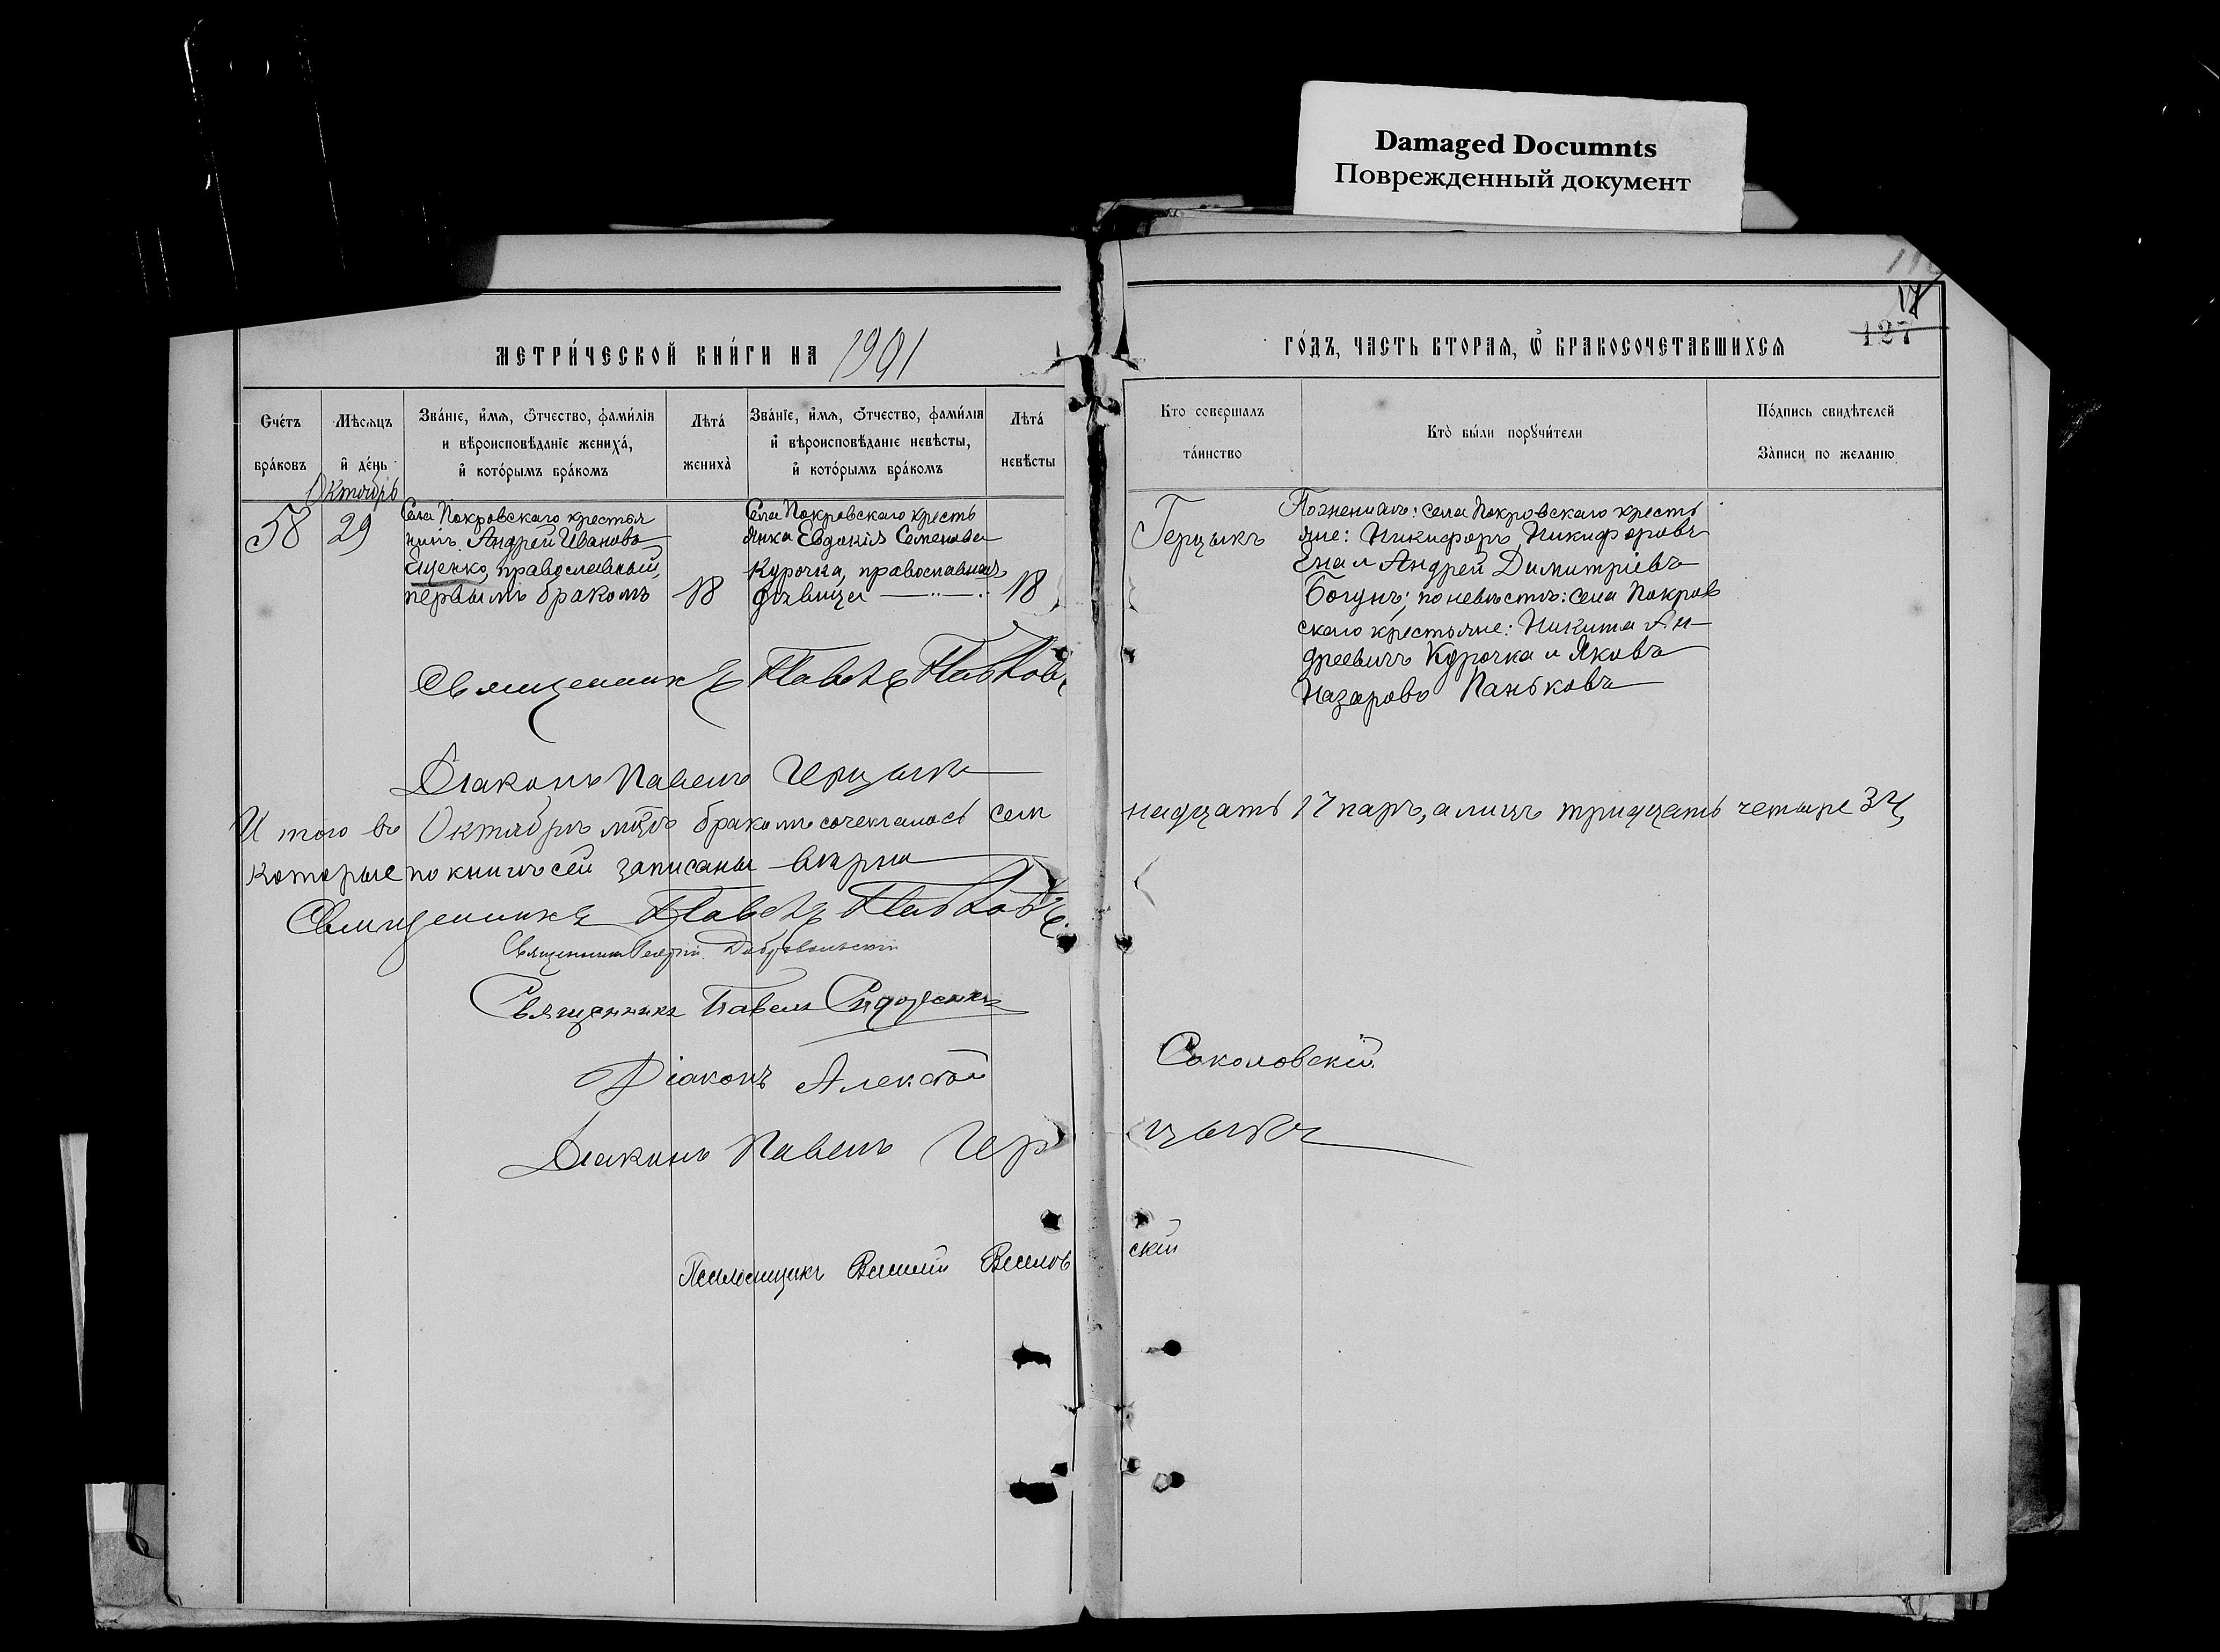 Damaged Documnts
Поврежденный документ
17
127
МЕТРИ́ЧЕСКОЙ КНИ́ГИ НА 1901
ГО́ДЪ, ЧАСТЬ ВТОРАЯ, Ѽ БРАКОСОЧЕТАВШИХСЯ
Сче́тъ бра́ковъ
Мѣсяцъ и҆ де́нь
Зва́нїе, и҆́мѧ, ѻ҆́тчество, фами́лїѧ и вѣроисповѣ́данїе жениха́, и҆ кото́рымъ бра́комъ
Лѣта́ жениха̀
Зва́нїе, и҆́мѧ, ѻ҆́тчество, фами́лїѧ и҆ вѣроисповѣ́данїе невѣ́сты, и҆ кото́рымъ бра́комъ
Лѣта́ невѣ́сты
Кто соверша́лъ та́инство
Кто̀ бы́ли порꙋчи́тели
По́дпись свидѣ́телей За́писи по жела́нію
Октябрь
58
29
Села Покровскаго крестья
нинъ Андрей Ивановъ
Ященко, православный,
первымъ бракомъ
18
Села Покровскаго кресть
янка Евдокія Семенова
Курочка, православная,
дѣвица
18
Герцыкъ
По женихѣ: села Покровскаго кресть
яне: Никифоръ Никифоровъ
Ена и Андрей Димитріевъ
Богунъ; по невѣстѣ: села Покров
скаго крестьяне: Никита Ан
дреевичъ Курочка и Яковъ
Назаровъ Паньковъ
Священникъ Павелъ Павловъ
Діаконъ Павелъ Герцыкъ
И того въ Октябрѣ мцѣ бракомъ сочеталось сем
надцать 17 паръ, а лицъ тридцать четыре 34,
которые по книгѣ сей записаны вѣрно
Священникъ Павелъ Павловъ.
Священникъ Георгій Добровольскій
Священникъ Павелъ
Діаконъ Алексѣй Соколовскій
Діаконъ Павелъ Герцыкъ
Псаломщикъ Василій Веселовскій